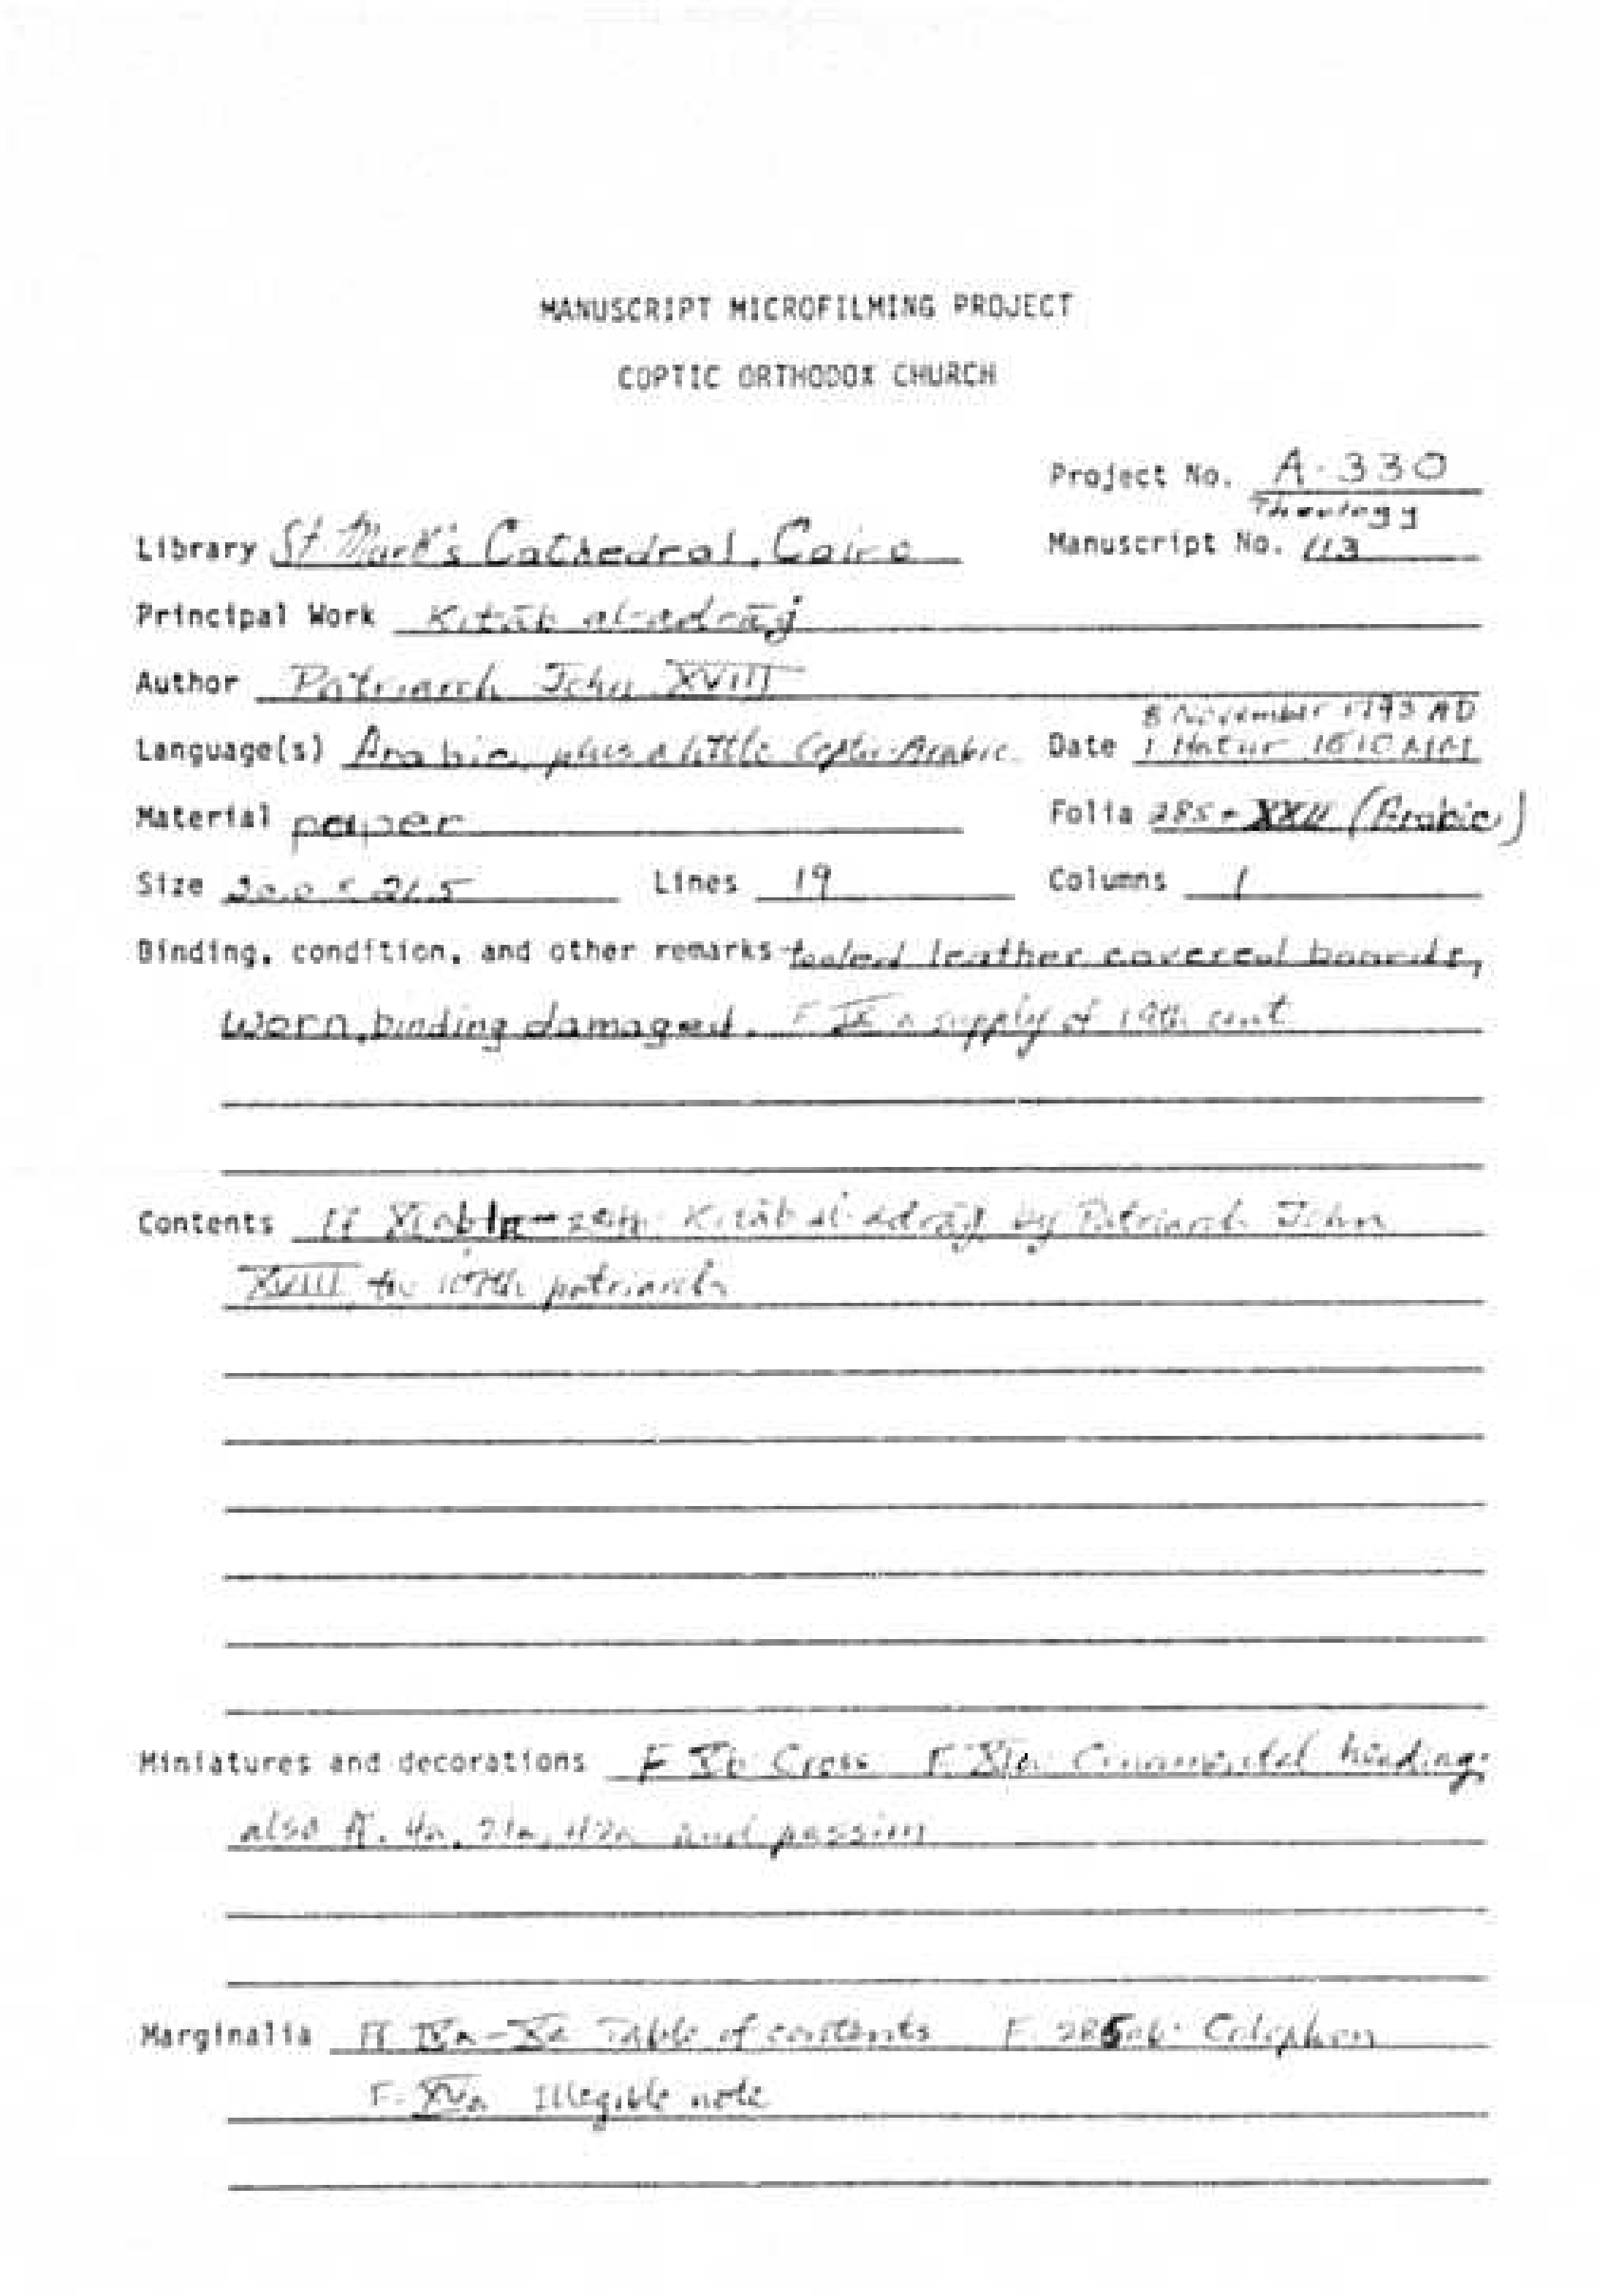 MANUSCRIPT MICROFILMING PROJECT
COPTIC ORTHODOX CHURCH
Project No. A-330
Theology
Library St. Mark's Cathedral, Cairo Manuscript No. 113
Principal Work Kitāb al-adrāj
Author Patriarch John XVIII
8 November 1793 AD
Language(s) Arabic, plus a little Coptic-Arabic Date 1 Hatur 1510 AM
Material paper Folia 285 + XXII (Arabic)
Size 21.5 Lines 19 Columns 1
Binding, condition, and other remarks tooled leather covered boards,
worn, binding damaged. F. IX a supply of 19th cent
Contents Kitāb al-adrāj by Patriarch John
XVIII the 107th patriarch
Miniatures and decorations F. Xb Cross F. XIa Ornamental heading;
also ff. 4a, and passim
Marginalia ff. IXa-Xa Table of contents F. 285ab: Colophon
F. XVa Illegible note